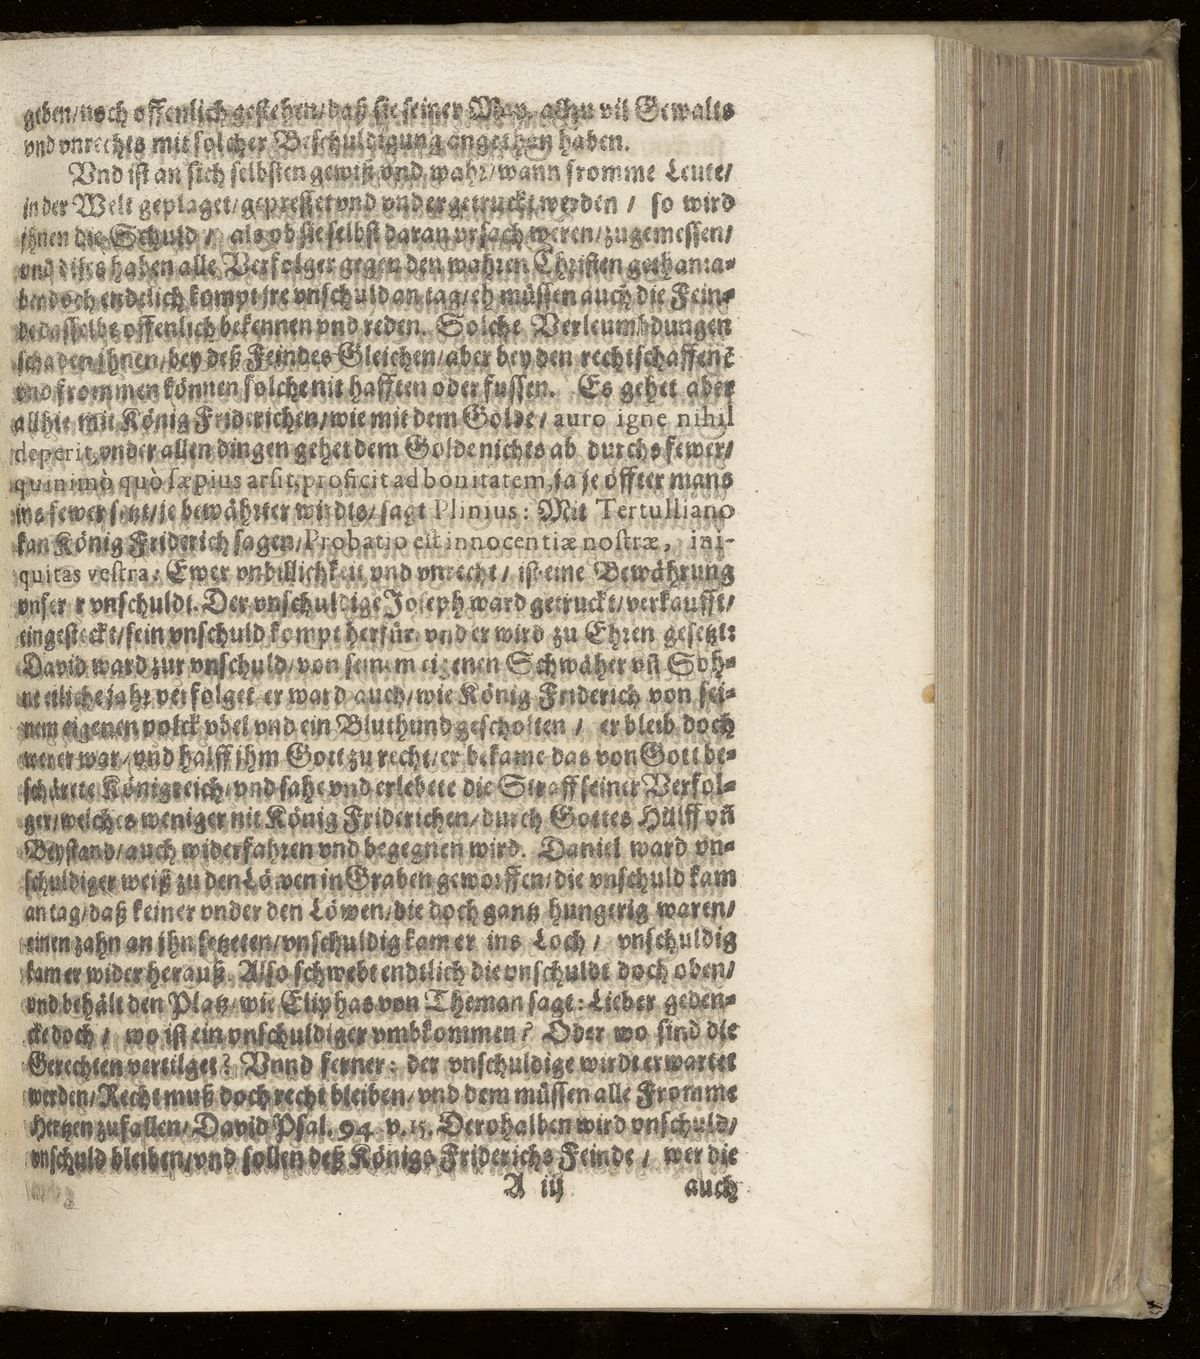 geben/noch offenlich gestehen/daß sie seiner May. allzu vil Gewalts
vnd vnrechts mit solcher Beschuldigung angethan haben.
Vnd ist an sich selbsten gewiß vnd wahr/wann fromme Leute/
in der Welt geplaget/gepresset vnd vndergetruckt werden / so wird
jhnen die Schuld / als ob sie selbst daran vrsach weren/zugemessen/
vnd dises haben alle Verfolger gegen den wahren Christen gethan:a-
ber doch endelich kompt jre vnschuld an tag/eh müssen auch die Fein-
de dasselbe offenlich bekennen vnd reden. Solche Verleumbdungen
schaden jhnen/bey deß Feindes Gleichen/aber bey den rechtschaffenē
vnd frommen können solche nit hafften oder fussen. Es gehet aber
allhie mit König Friderichen/wie mit dem Golde/ auro igne nihil
deperit, vnder allen dingen gehet dem Golde nichts ab durchs fewer/
quinimò quò sæpius arsit, proficit ad bonitatem, ja je öffter mans
ins fewer setzt/je bewährter wirdts/ sagt Plinius: Mit Tertulliano
kan König Friderich sagen/Probatio est innocentiæ nostræ, ini-
quitas vestra, Ewer vnbillichkeit vnd vnrecht/ ist eine Bewährung
vnserer vnschuldt. Der vnschuldige Joseph ward getruckt/verkaufft/
eingesteckt/sein vnschuld kompt herfür vnd er wird zu Ehren gesetzt:
David ward zur vnschuld/von seinem eigenen Schwäher vñ Soh-
ne etliche jahr verfolget/er ward auch/wie König Friderich von sei-
nem eigenen volck vbel vnd ein Bluthund gescholten / er bleib doch
wer er war/vnd halff jhm Gott zu recht/er bekame das von Gott be-
schärte Königreich/vnd sahe vnd erlebete die Straff seiner Verfol-
ger/welches weniger nit König Friderichen/durch Gottes Hülff vñ
Beystand/auch widerfahren vnd begegnen wird. Daniel ward vn-
schuldiger weiß zu den Löwen in Graben geworffen/die vnschuld kam
an tag/daß keiner vnder den Löwen/die doch gantz hungerig waren/
einen zahn an jhn setzeten/vnschuldig kam er ins Loch / vnschuldig
kam er wider herauß. Also schwebt endtlich die vnschuldt doch oben/
vnd behält den Platz/wie Eliphas von Theman sagt: Lieber geden-
cke doch / wo ist ein vnschuldiger vmbkommen? Oder wo sind die
Gerechten vertilget? Vnnd ferner: der vnschuldige wirdt errettet
werden/Recht muß doch recht bleiben/vnd dem müssen alle Fromme
Hertzen zufallen/David Psal. 94. v. 15. Derohalben wird vnschuld/
vnschuld bleiben/vnd sollen deß Königs Friderichs Feinde / wer die
A iij
auch